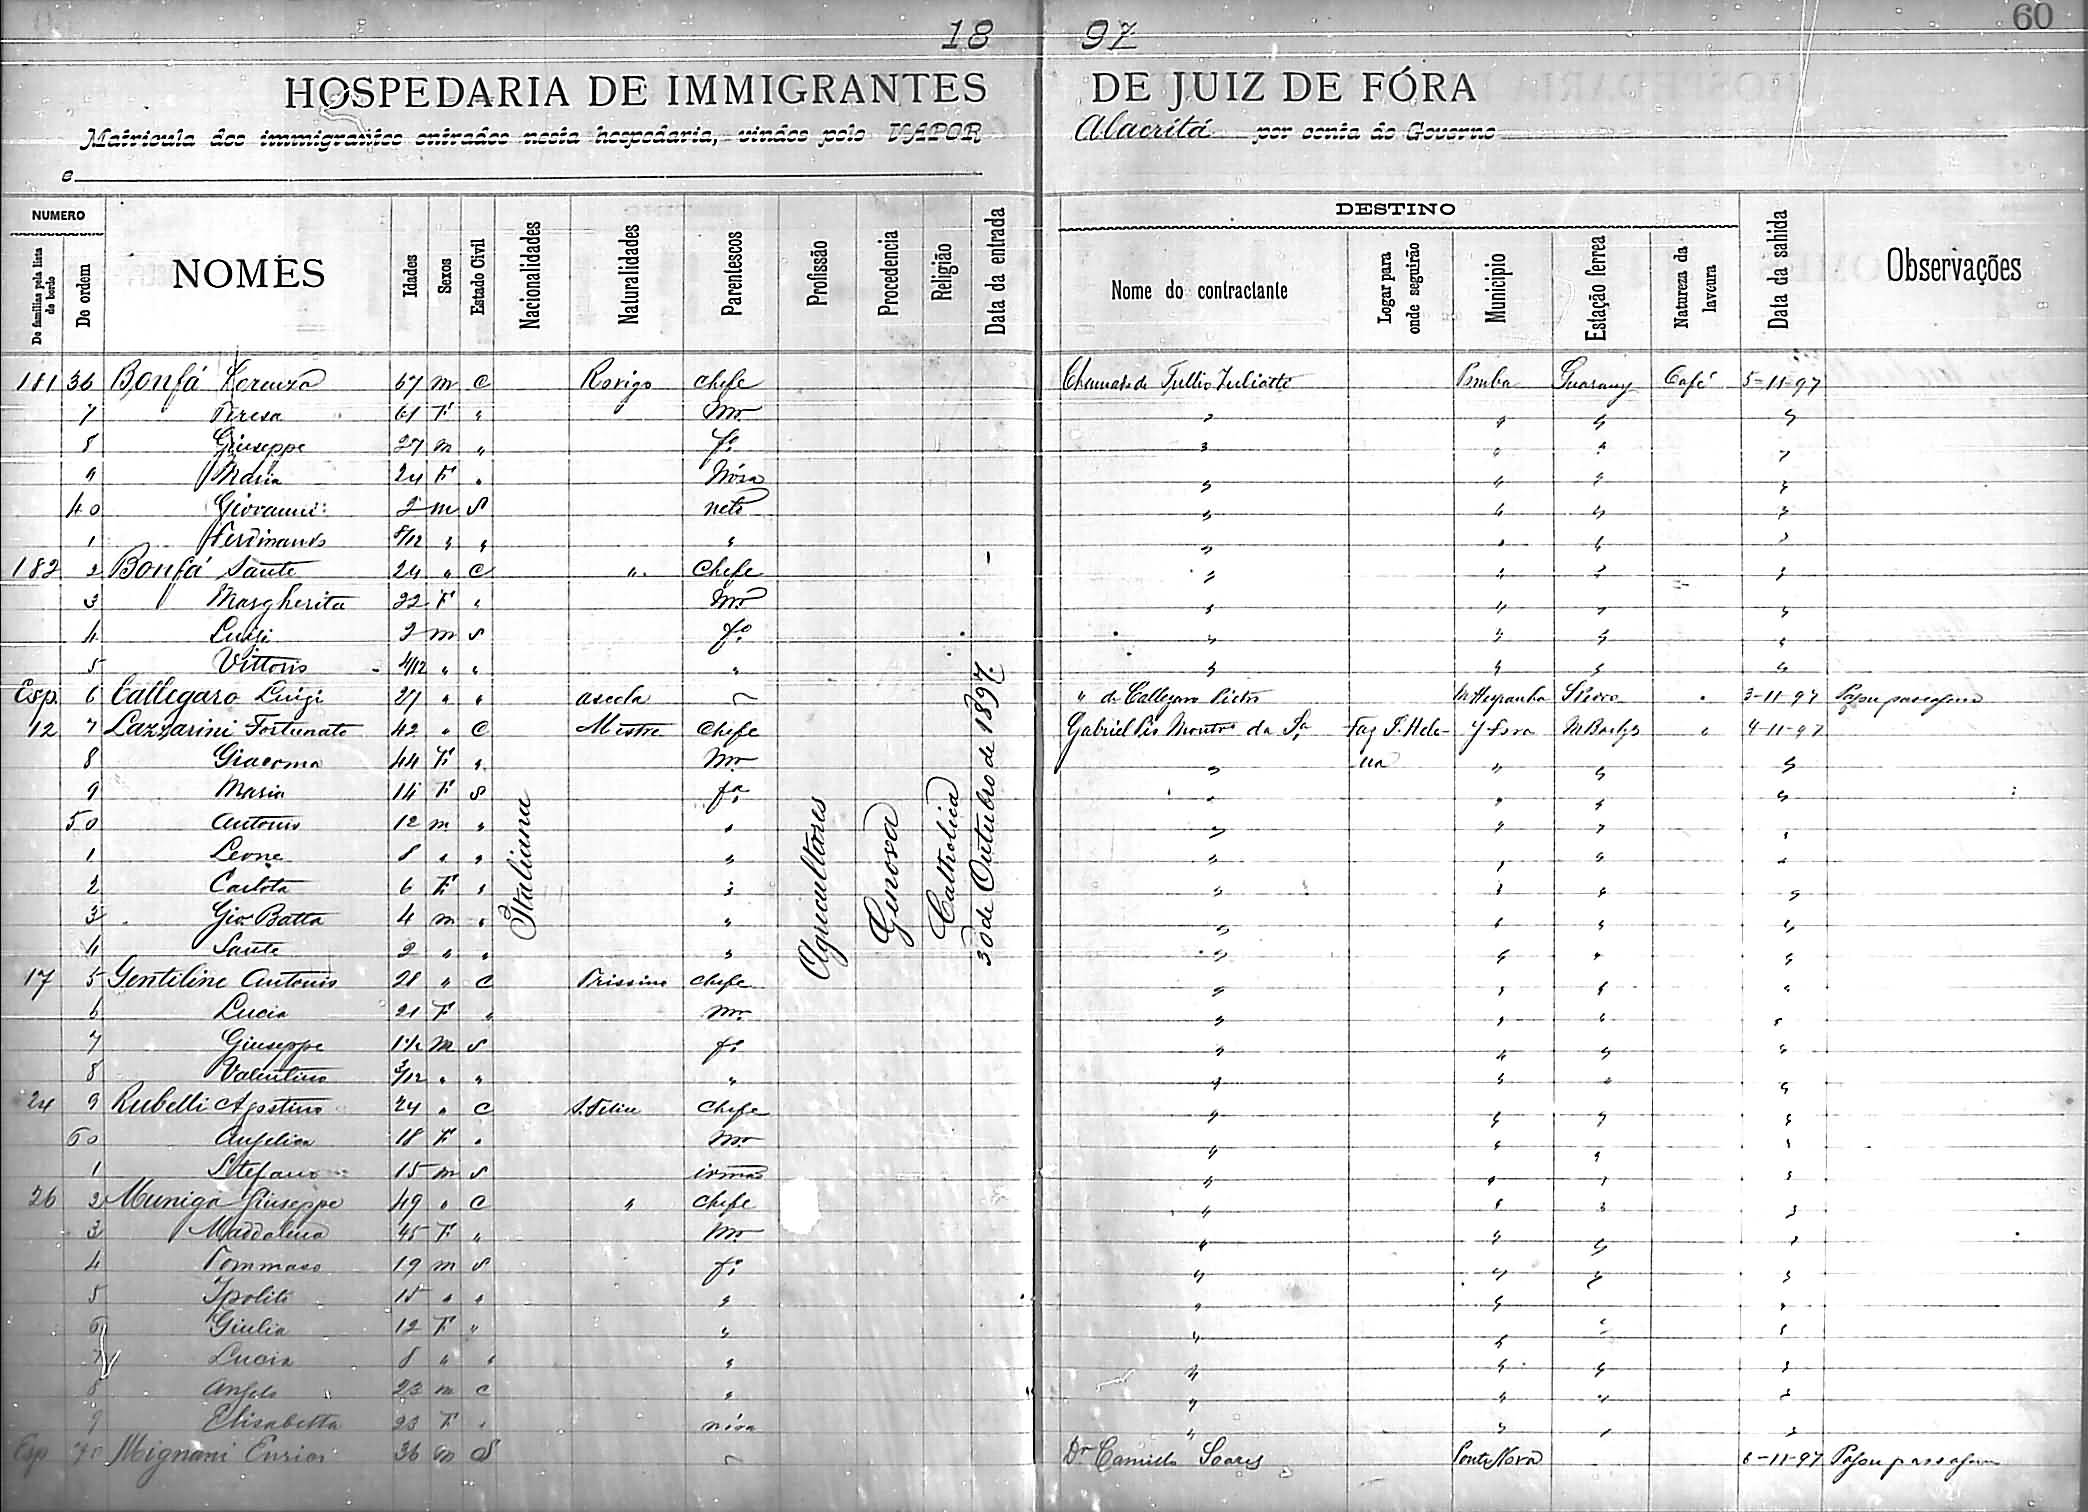 60
18 97
HOSPEDARIA DE IMMIGRANTES DE JUIZ DE FÓRA
Matricula dos immigrantes entrados nesta hospedaria, vindos pelo VAPOR Alacritá por conta do Governo
e
NUMERO DESTINO
De familias pela lista de bordo De ordem NOMES Idades Sexos Estado Civil Nacionalidades Naturalidades Parentescos Profissão Procedencia Religião Data da entrada Nome do contractante Logar para onde seguirão Municipio Estação ferrea Natureza da lavoura Data da sahida Observações
181 36 Bonfá Lorenzo 67 m C Rovigo Chefe Chamado de Tullio Pomba Guarany Café 5-11-97
7 Teresa 61 F " Mr " " " "
8 Giuseppe 27 m " fo " " " "
9 Maria 24 F " Nóra " " " "
40 Giovanni 2 m S neto " " " "
1 Ferdinando 8/12 " " " " " " "
182 2 Bonfá Sante 24 " C " Chefe " " " "
3 Margherita 22 F " Mr " " " "
4 Luigi 2 m S fo " " " "
5 Vittorio 4/12 " " " " " " "
Esp. 6 Callegaro Luigi 27 " " — " de Callegaro Pietro M Hespanha " 3-11-97 Pagou passagem
12 7 Lazzarini Fortunato 42 " C Mestre Chefe Gabriel Pio Montro da Sa Faz S. Hele- J Fora " 4-11-97
8 Giacoma 44 F " Mr " na " " "
9 Maria 14 F S fa " " " "
50 Antonio 12 m " " " " " "
1 Leone 8 " " " " " " "
2 Carlota 6 F " " " " " "
3 Gio Batta 4 m " " " " " "
4 Sante 2 " " " " " " "
17 5 Gentiline Antonio 28 " C Trissino Chefe " " " "
6 Lucia 21 F " Mr " " " "
7 Giuseppe 1 1/2 m S fo " " " "
8 Valentino 3/12 " " " " " " "
24 9 Rubelli Agostino 24 " C S. Felice Chefe " " " "
60 Angelica 18 F " Mr " " " "
1 Stefano 15 m S irmão " " " "
26 2 Muniga Giuseppe 49 " C " Chefe " " " "
3 Maddalena 45 F " Mr " " " "
4 Tommaso 19 m S fo " " " "
5 Ipolito 15 " " " " " "
6 Giulia 12 F " " " " " "
7 Lucia 8 " " " " " " "
8 Angelo 23 m C " " " " "
9 Elisabetta 23 F " nóra " " " "
Esp 70 Mignani Enrico 36 m S — Dr Camillo Soares Ponte Nova 6-11-97 Pagou passagem
Italiana
Agricultores
Genova
Catholica
30 de Outubro de 1897.